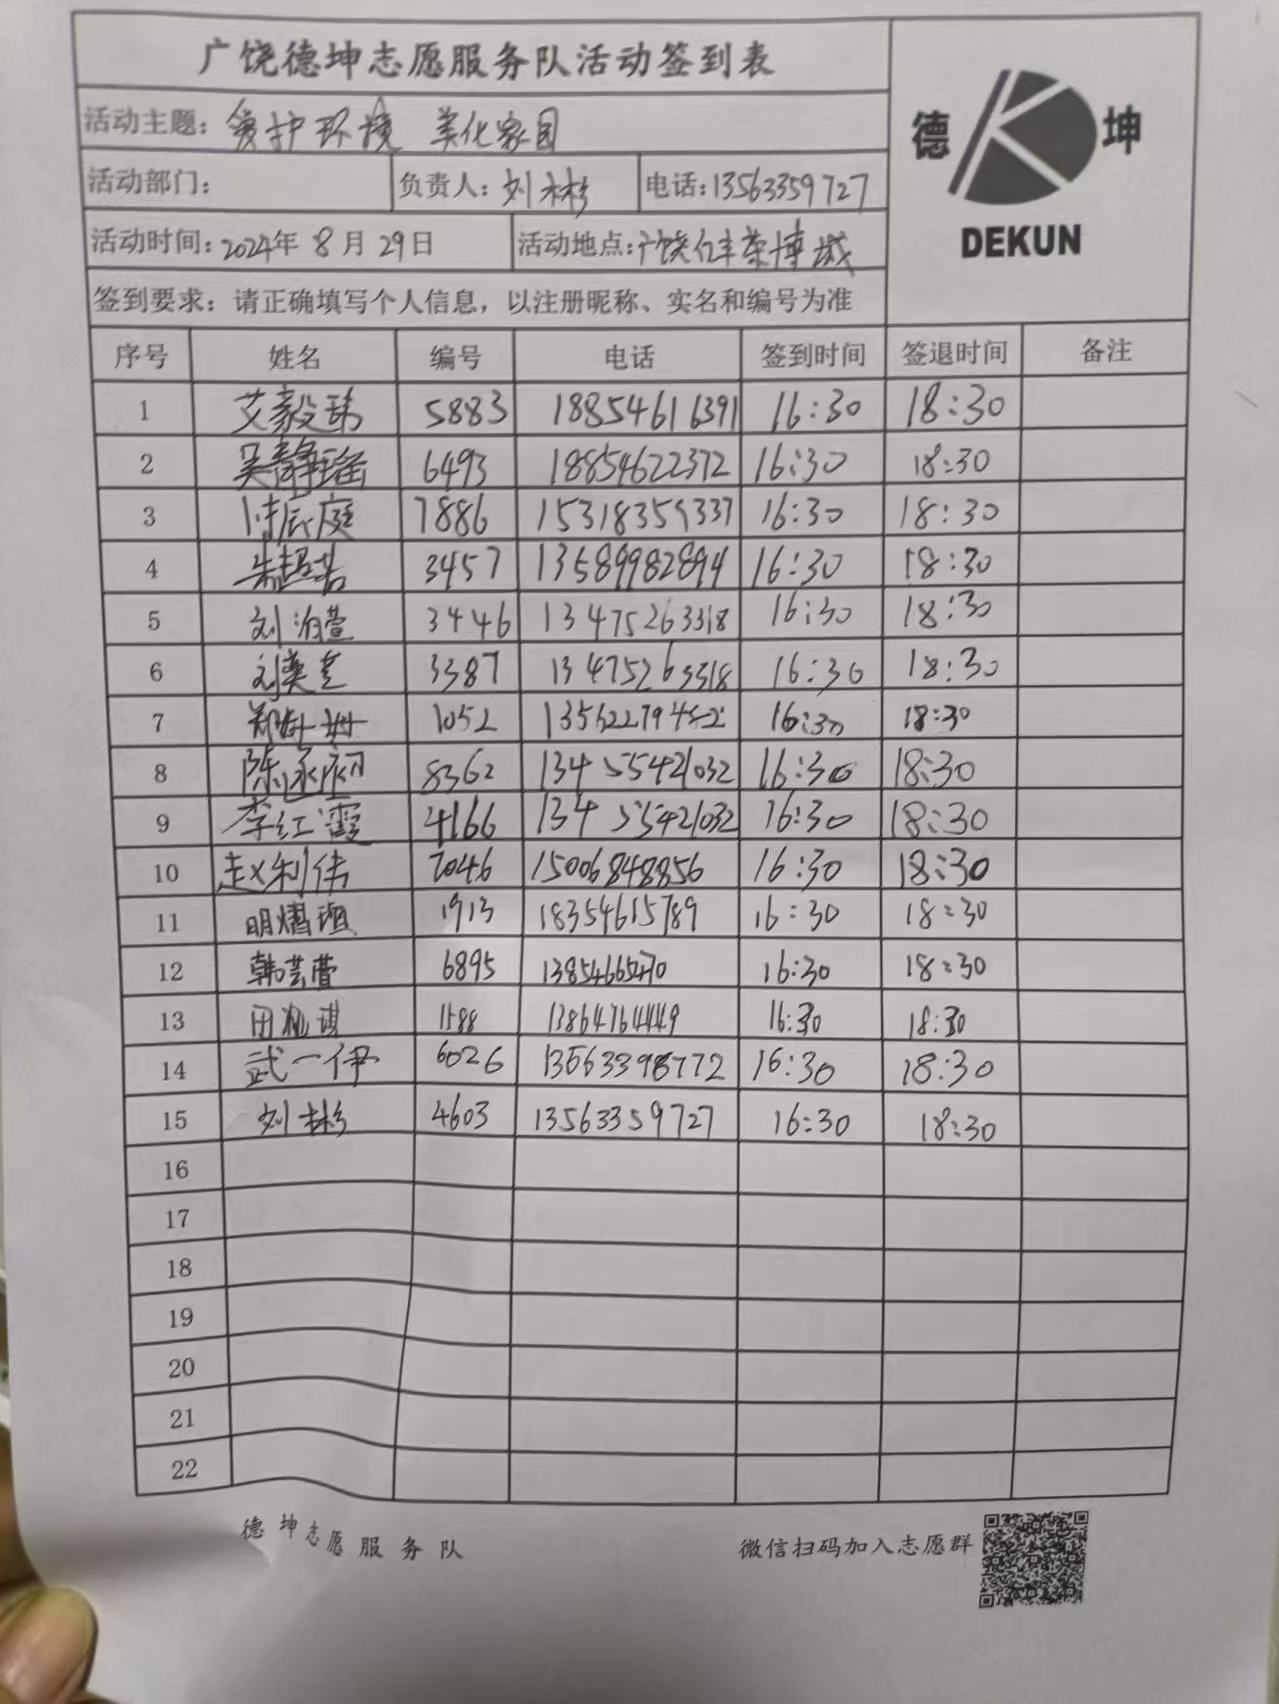 广饶德坤志愿服务队活动签到表
德 坤
DEKUN
活动主题：爱护环境 美化家园
活动部门： 负责人：刘彬 电话：13563359727
活动时间：2024年8月29日 活动地点：广饶亿丰荣博城
签到要求：请正确填写个人信息，以注册昵称、实名和编号为准
序号 姓名 编号 电话 签到时间 签退时间 备注
1 艾毅玮 5883 18854616391 16:30 18:30
2 吴静瑶 6493 18854622372 16:30 18:30
3 付辰庭 7886 15318359337 16:30 18:30
4 3457 13589982894 16:30 18:30
5 刘泊萱 3446 13475263318 16:30 18:30
6 刘奕萱 3387 13475263318 16:30 18:30
7 1052 16:30 18:30
8 8362 134555421032 16:30 18:30
9 李红霞 4166 134555421032 16:30 18:30
10 赵利伟 7046 15006848856 16:30 18:30
11 明熠瑄 1913 18354615789 16:30 18:30
12 韩芸萱 6895 16:30 18:30
13 田 琪 1588 13864764449 16:30 18:30
14 武一伊 6026 13563398772 16:30 18:30
15 刘彬 4603 13563359727 16:30 18:30
16
17
18
19
20
21
22
德坤志愿服务队 微信扫码加入志愿群